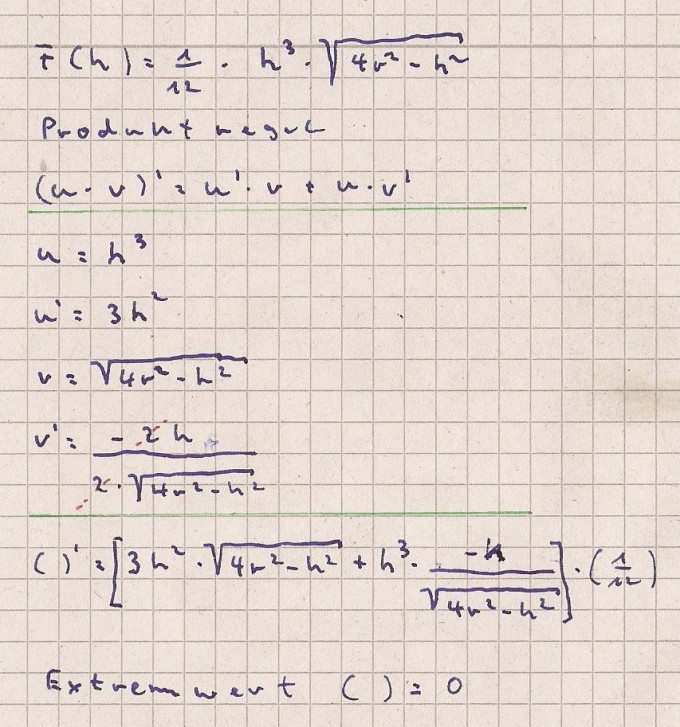 F(h) = 1/12 · h³ · √(4r² - h²)
Produktregel
(u · v)' = u' · v + u · v'
u = h³
u' = 3h²
v = √(4r² - h²)
v' = (-2h) / (2 · √(4r² - h²))
( )' = [3h² · √(4r² - h²) + h³ · (-h) / √(4r² - h²)] · (1/12)
Extremwert ( ) = 0